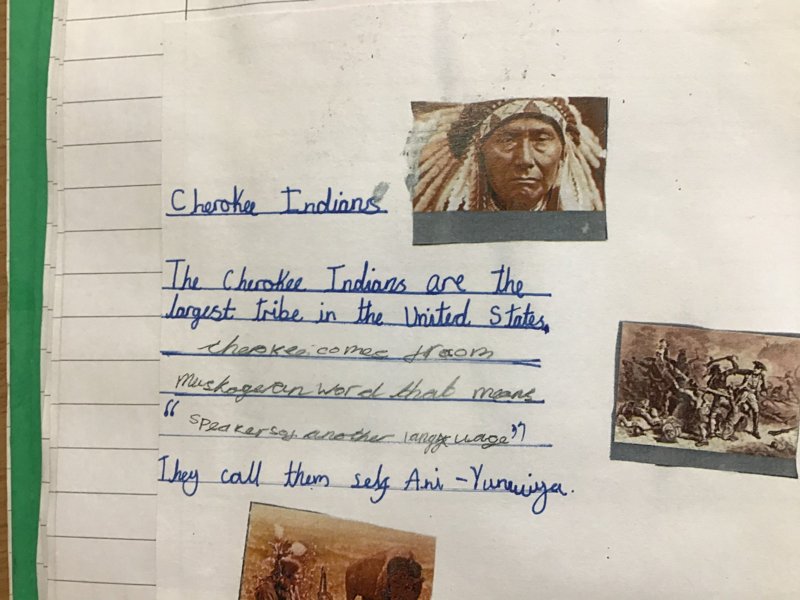 Cherokee Indians
The Cherokee Indians are the
largest tribe in the United States.
cherokee comes froom
muskogean word that means
"speakers of another langyuage"
They call them self Ani-Yunwiya.